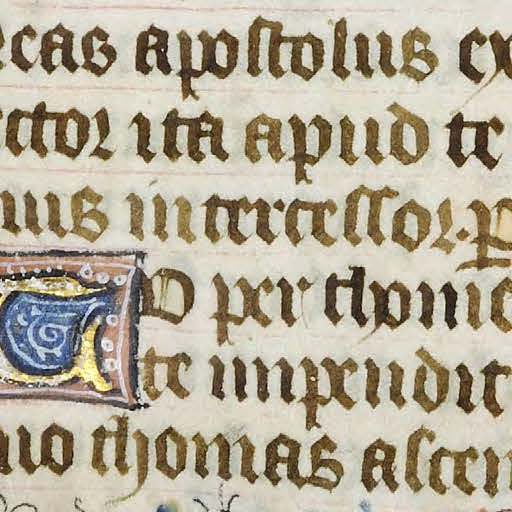 apostolus
ctor ita apud te
nus intercessor. p
D per
te impendit
uo thomas ascen